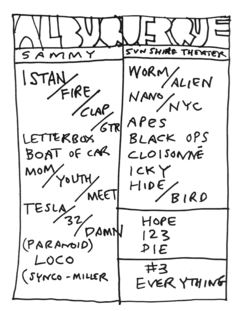 ALBUQUERQUE
SAMMY
ISTAN/
FIRE/
CLAP/
GTR
LETTERBOX
BOAT OF CAR
MOM/
YOUTH/
MEET
TESLA/
32/
DAMN
(PARANOID)
LOCO
(SYNCO-MILLER
SUNSHINE THEATER
WORM/
ALIEN
NANO/
NYC
APES
BLACK OPS
CLOISONNÉ
ICKY
HIDE/
BIRD
HOPE
123
DIE
#3
EVERYTHING